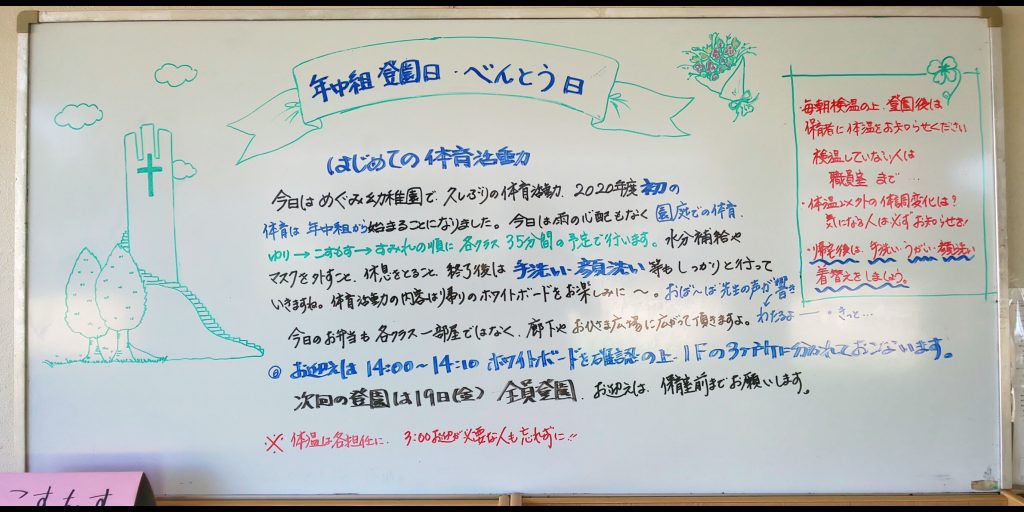 年中組 登園日・べんとう日
はじめての体育活動
今日は めぐみ幼稚園で、久しぶりの体育活動、2020年度 初の
体育は 年中組から始まることになりました。今日は雨の心配もなく 園庭での体育、
ゆり→こすもす→すみれの順に 各クラス 35分間の予定で行います。水分補給や
マスクを外すこと、休息をとること、終了後は 手洗い・顔洗い 等も しっかりと行って
いきますね。体育活動の内容は帰りのホワイトボードをお楽しみに〜。おばーば先生の声が響き
わたるよ— ・きっと…
今日のお弁当も 各クラス一部屋ではなく、廊下や おひさま広場に広がって頂きますよ。
◎ お迎えは 14:00〜14:10 ホワイトボードを確認の上、1Fの3ヶ所に分かれておこないます。
次回の登園は19日(金) 全員登園、お迎えは、保育室前までお願いします。
※ 体温は各担任に、3:00お迎が必要な人も忘れずに!!
・毎朝検温の上、登園後は
保育者に体温をお知らせください
検温していない人は
職員室 まで…
・体温以外の体調変化は?
気になる人は必ずお知らせを!
・帰宅後は、手洗い・うがい・顔洗い
着替えをしましょう。
こすもす